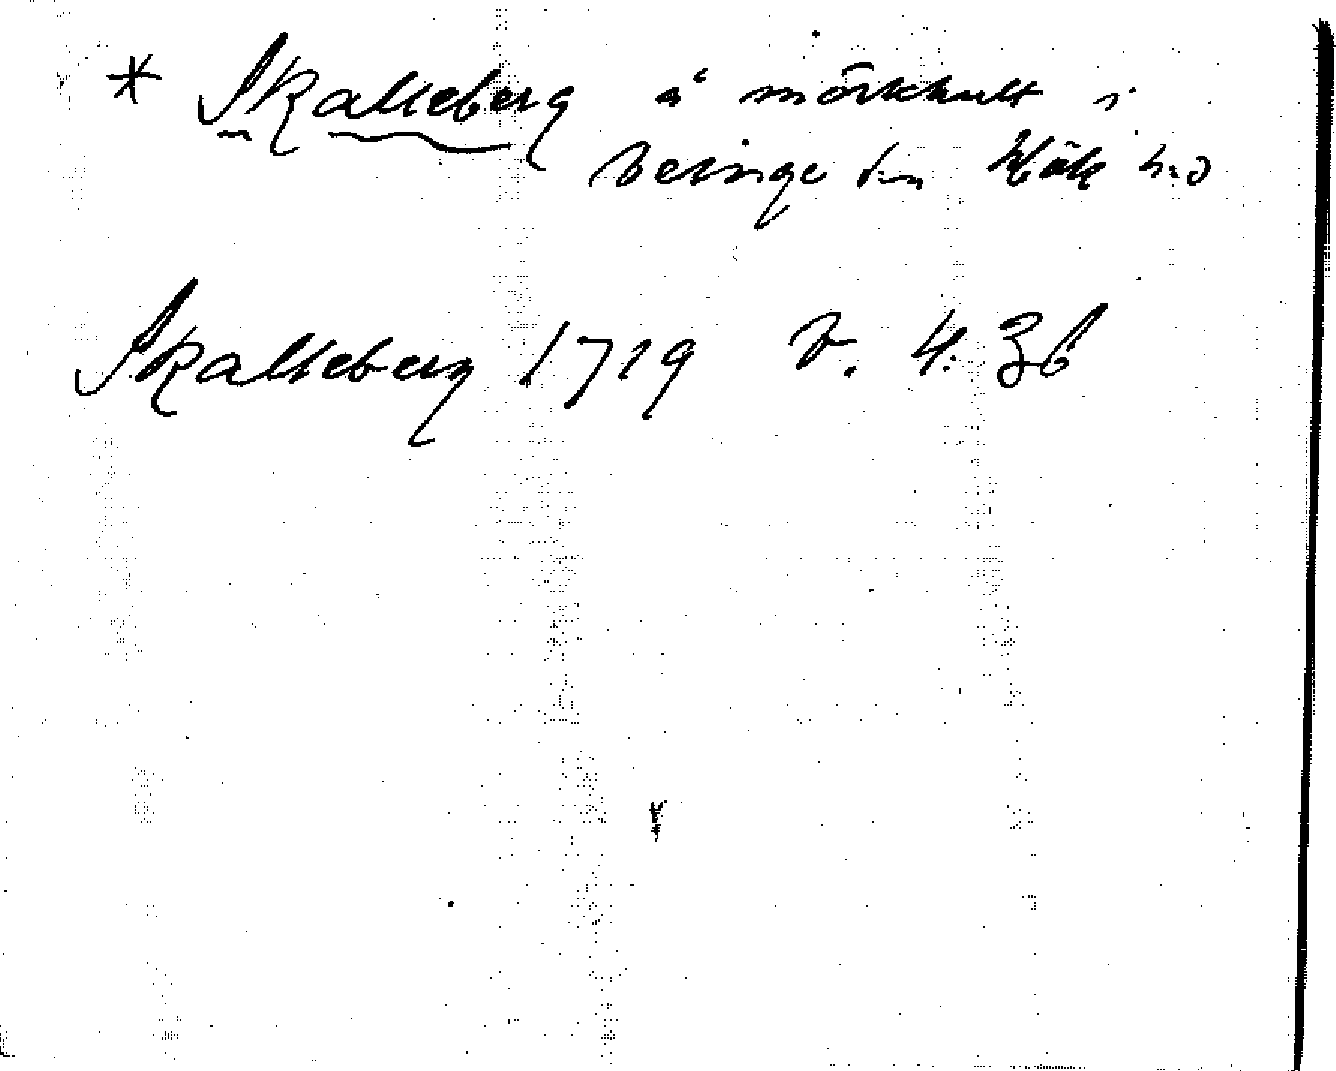 * Skalleberg å mörkhult i
Veinge sn Höks hd
Skalleberg 1719 V. 4:36